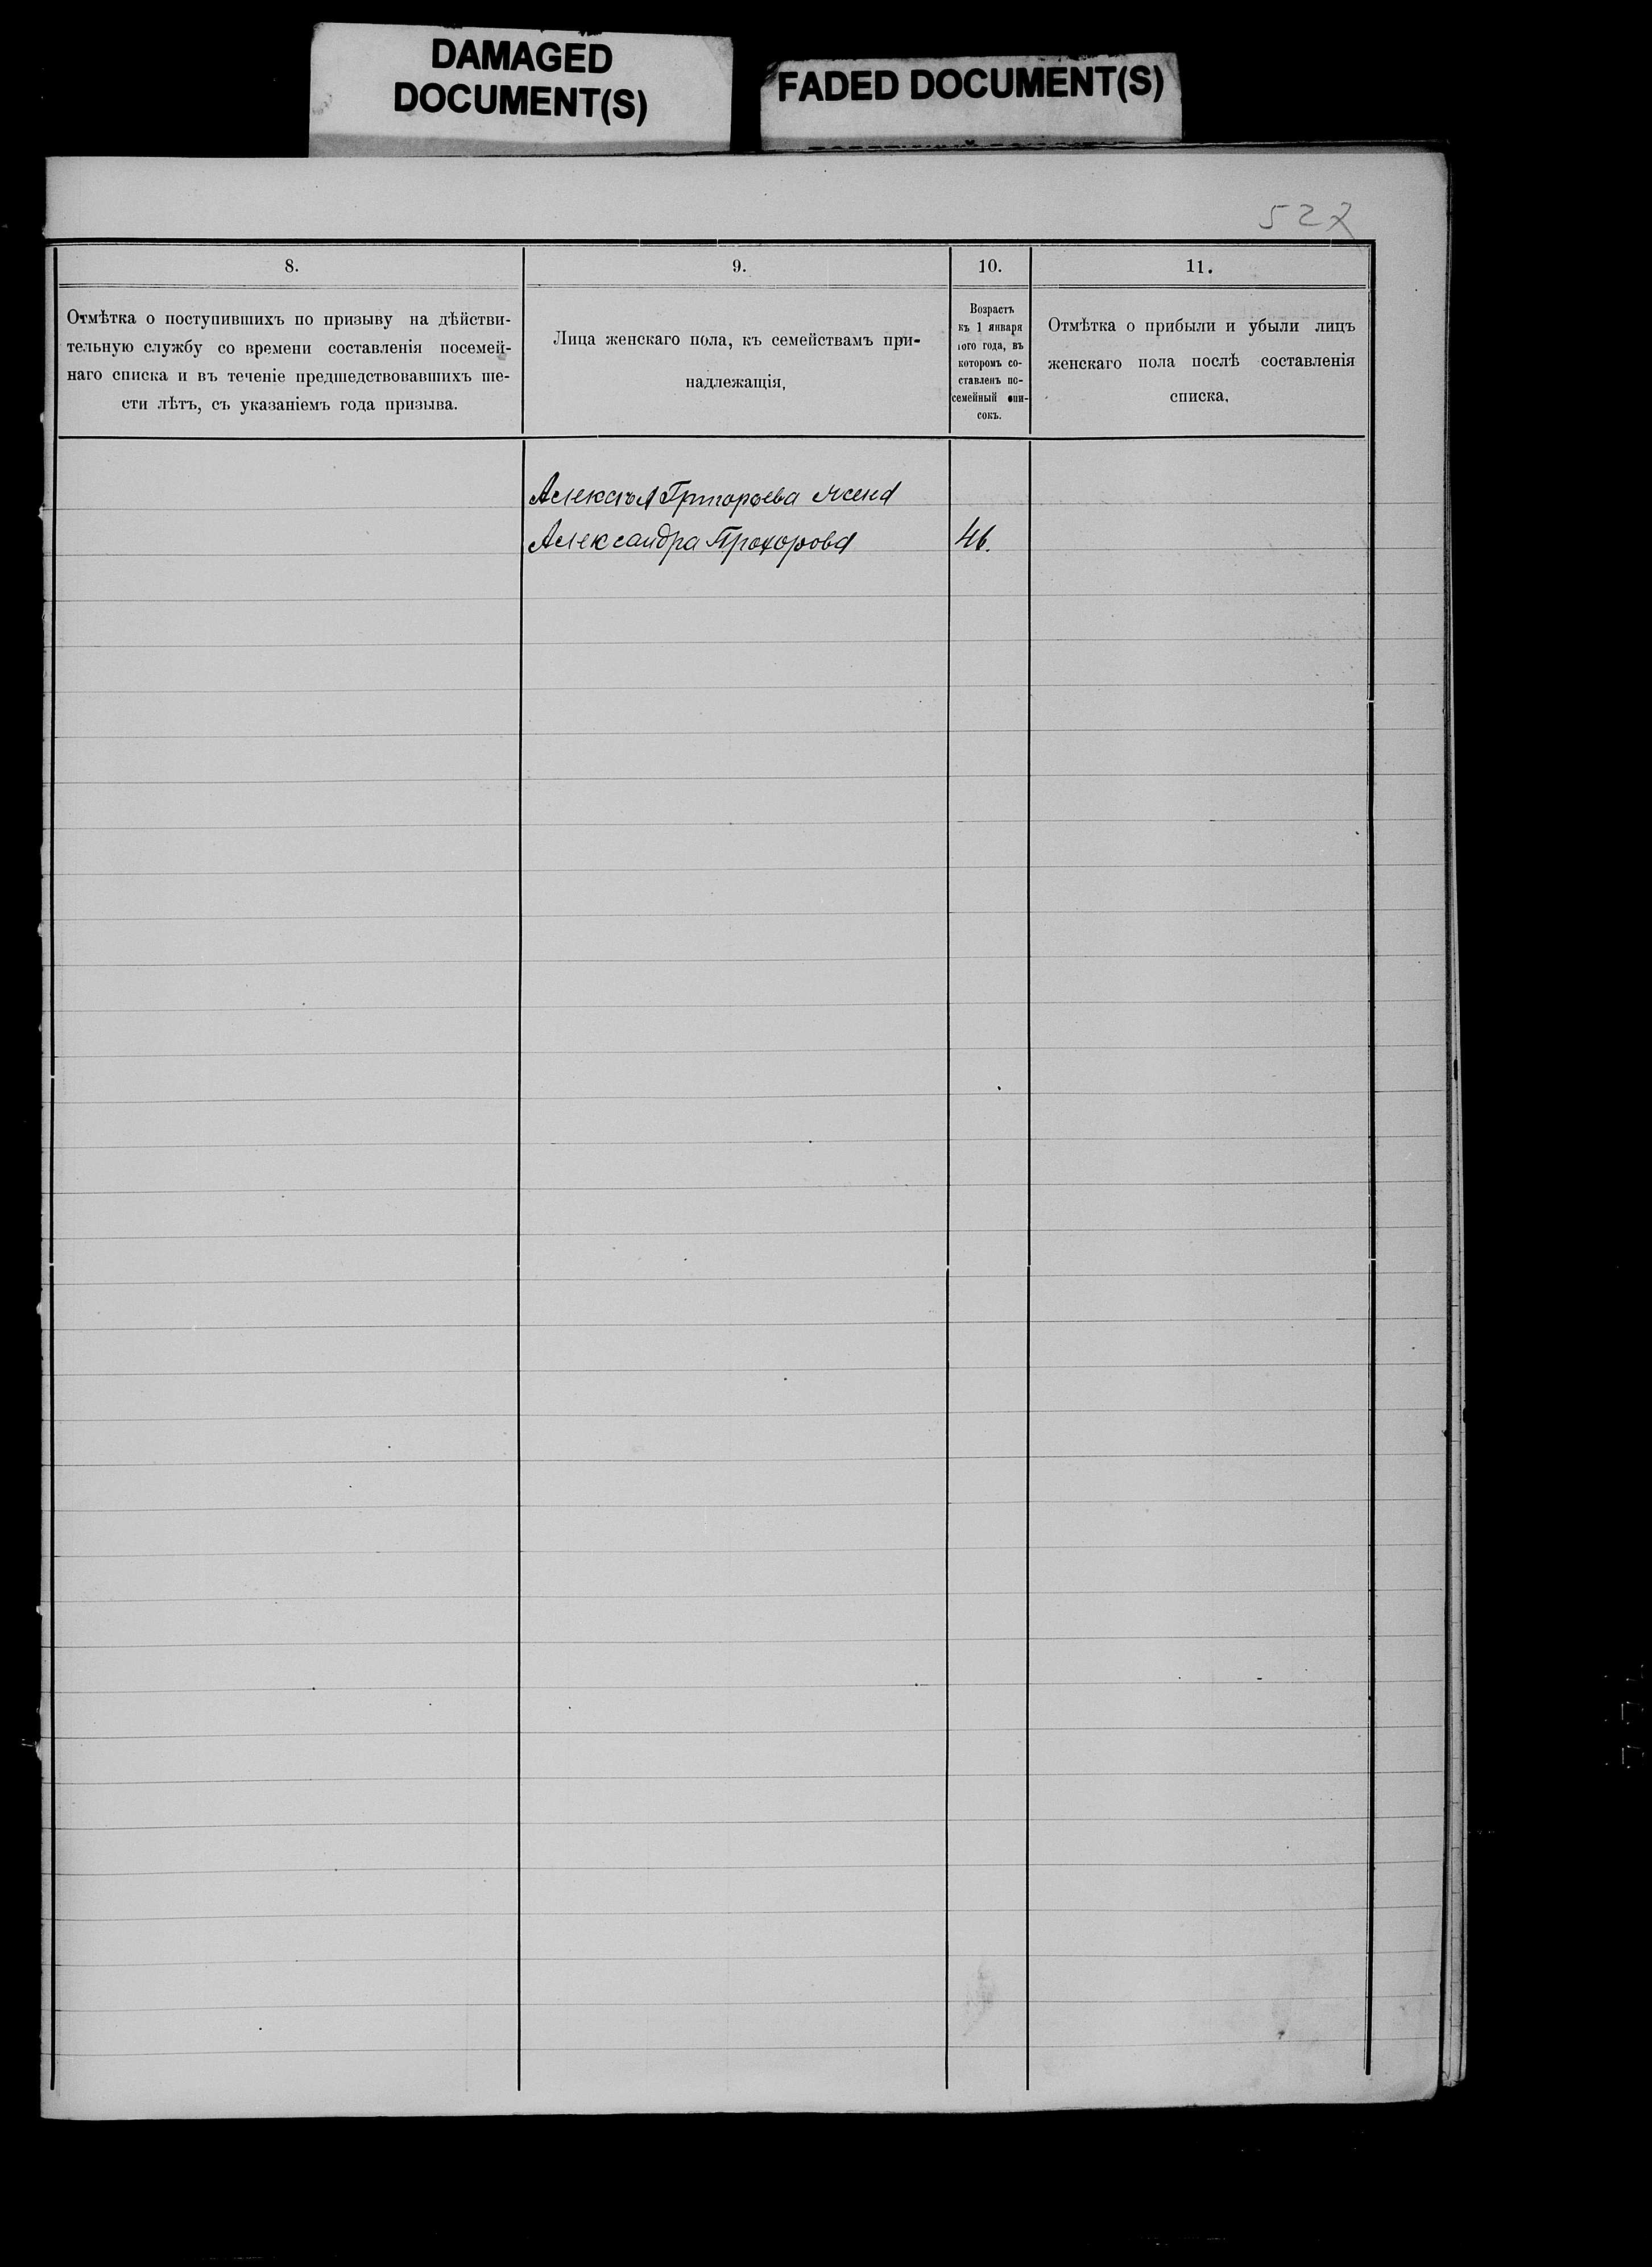 DAMAGED
DOCUMENT(S)
FADED DOCUMENT(S)
527
8.
9.
10.
11.
Отмѣтка о поступившихъ по призыву на дѣйстви-
тельную службу со времени составленія посемей-
наго списка и въ теченіе предшедствовавшихъ ше-
сти лѣтъ, съ указаніемъ года призыва.
Лица женскаго пола, къ семействамъ при-
надлежащія,
Возрастъ
къ 1 января
того года, въ
которомъ со-
ставленъ по-
семейный спи-
сокъ.
Отмѣтка о прибыли и убыли лицъ
женскаго пола послѣ составленія
списка.
Алексѣя Григорьева жена
Александра Прохорова
46.